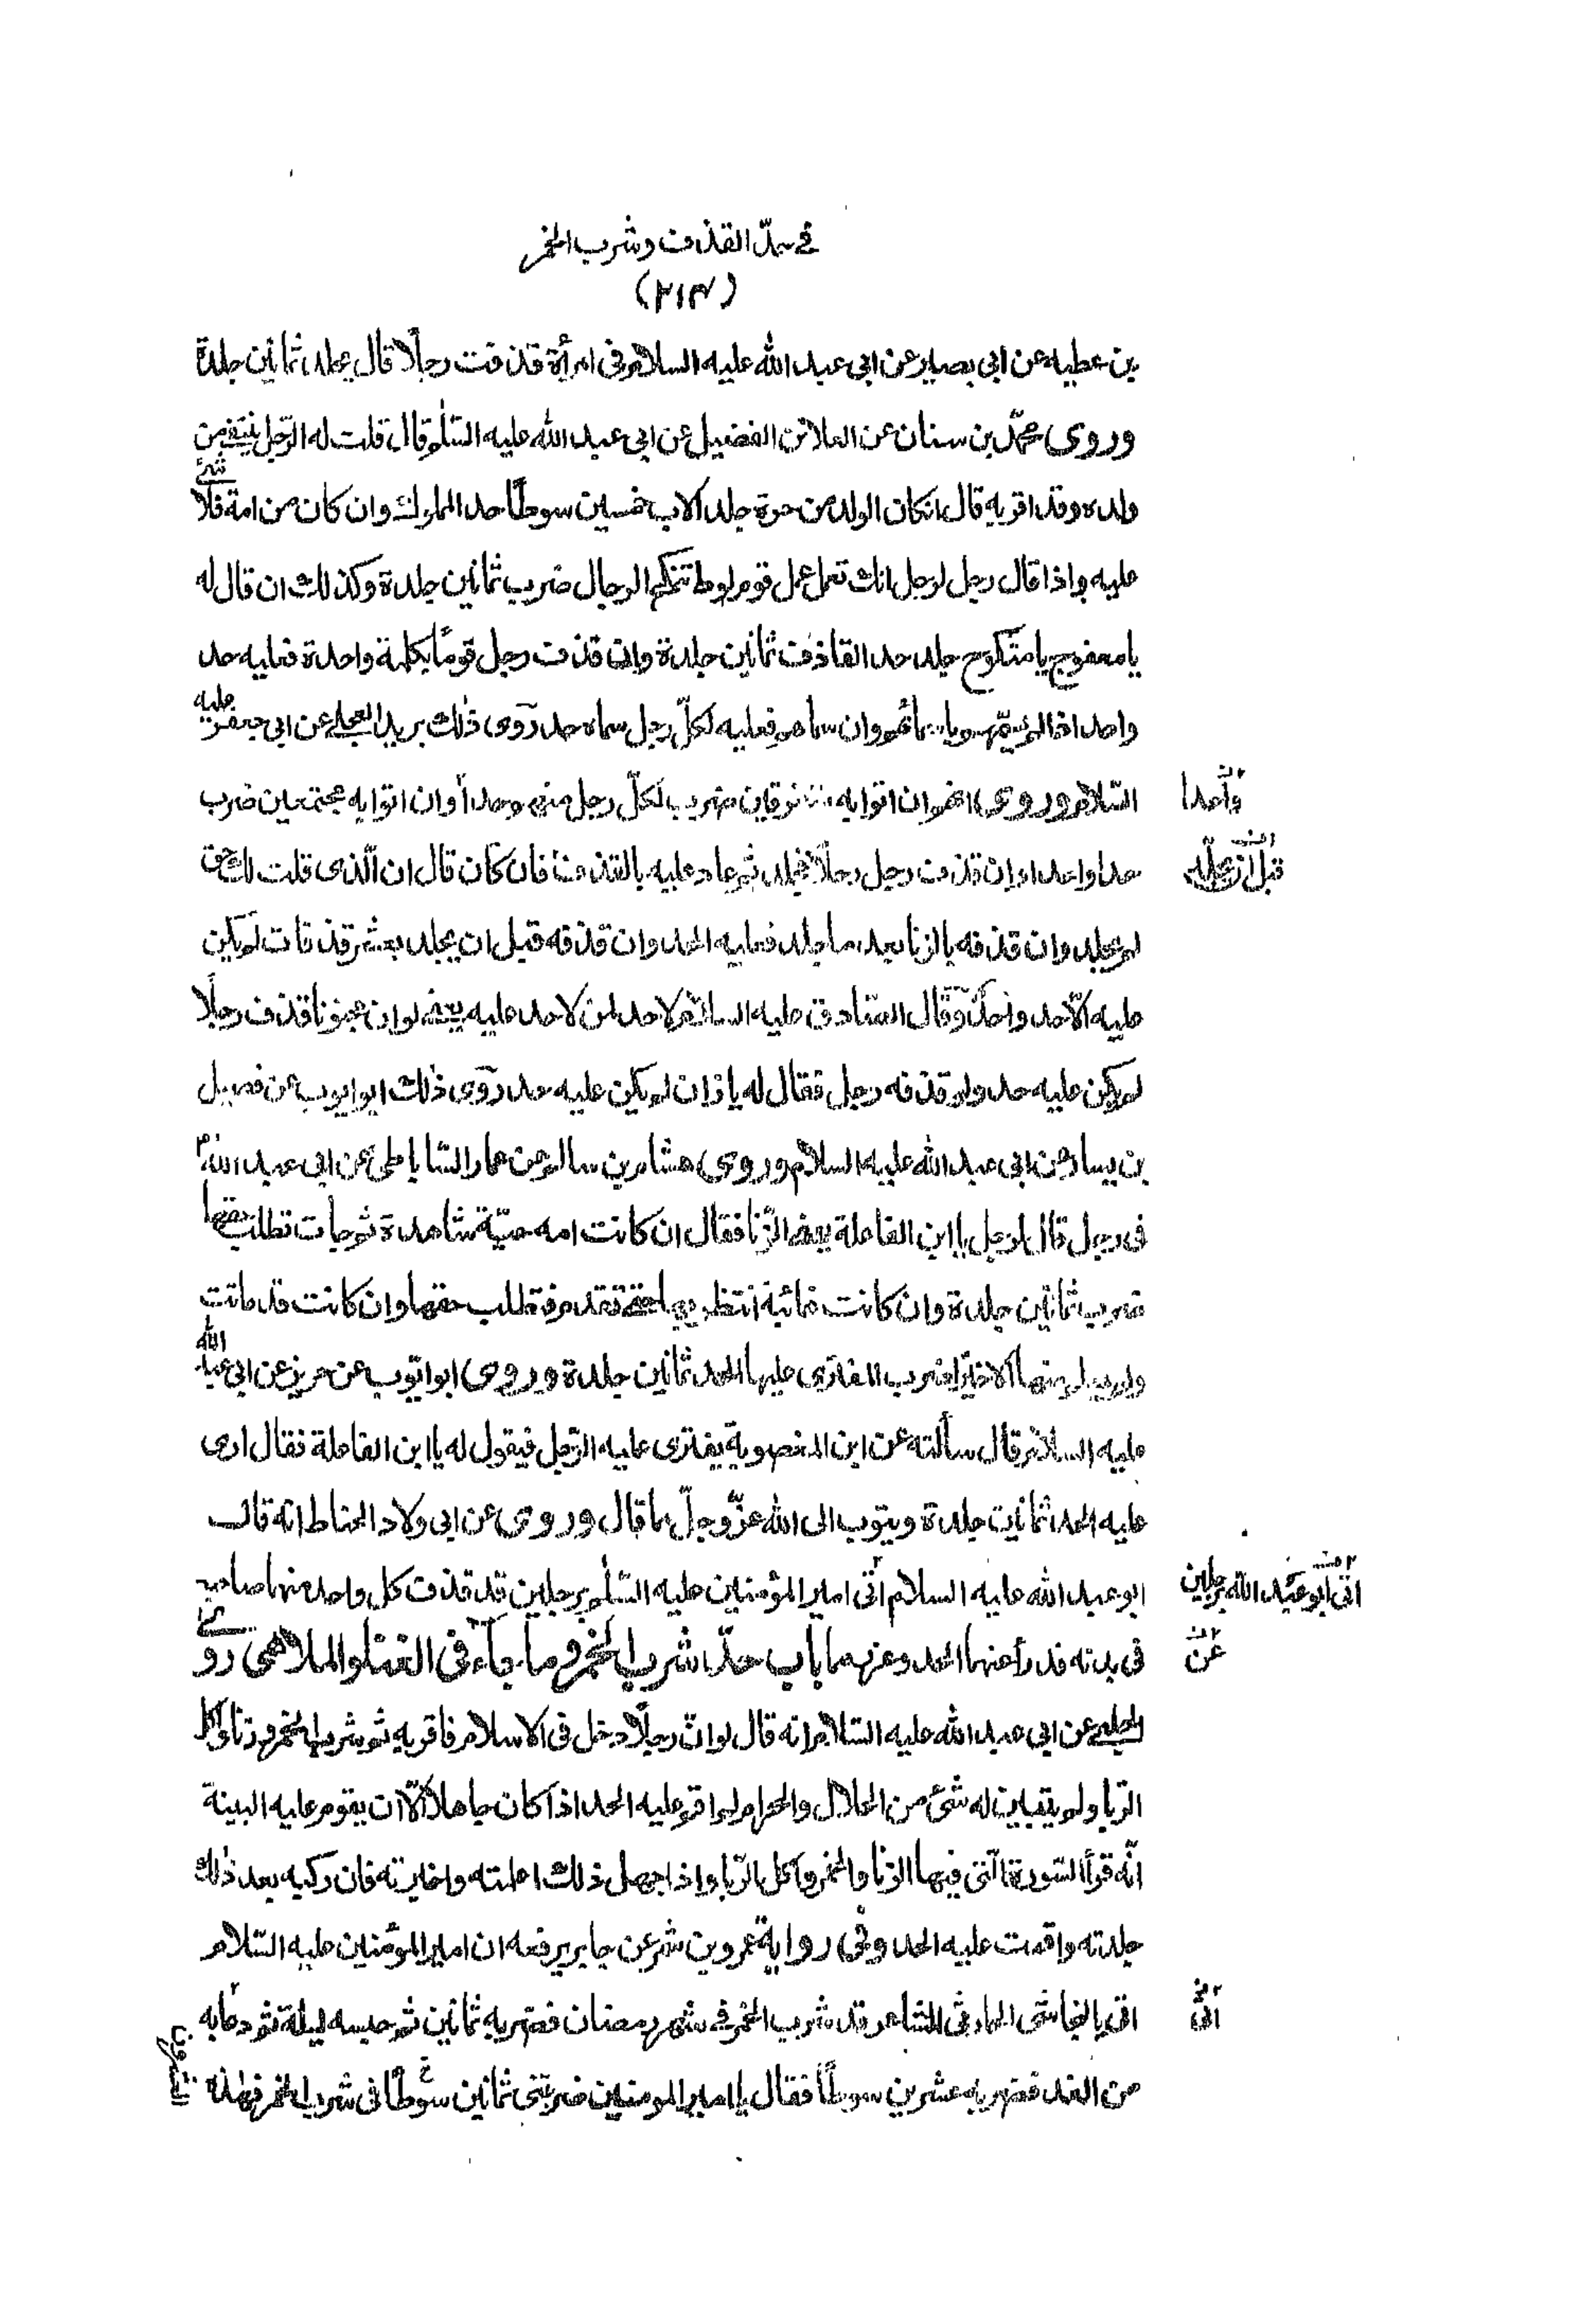 في حدّ القذف وشرب الخمر
(٢١٣)
بن عطيه عن ابى بصير عن ابى عبد الله عليه السلام فى امرأة قذفت رجلًا قال يجلد ثمانين جلدة
وروى محمّد بن سنان عن العلا بن الفضيل عن ابى عبد الله عليه السّلم قال قلت له الرّجل ينتفى من
ولده وقد اقر به قال ان كان الولد من حرة جلد الاب خمسين سوطًا حد المملوك وان كان من امة فلا شئ
عليه واذا قال رجل لرجل انك تعمل عمل قوم لوط تنكح الرجال ضرب ثمانين جلدة وكذلك ان قال له
يا معفوج يا منكوح جلد حد القاذف ثمانين جلدة وان قذف رجل قومًا بكلمة واحدة فعليه حد
واحد اذا لم يسمّهم باسمائهم وان سماهم فعليه لكلّ رجل سماه حد روى ذلك بريد العجلي عن ابى جعفر عليه
السّلام وروى انهم ان اتوا به متفرقين ضرب لكلّ رجل منهم حدا وان اتوا به مجتمعين ضرب
واحدا
حدا واحدا وان قذف رجل رجلًا فجلد ثم عاد عليه بالقذف فان كان قال ان الّذى قلت لك حق
قبل ان يجلد
لم يجلد وان قذفه بالزنا بعد ما جلد فعليه الحد وان قذفه قبل ان يجلد بعشر قذفات لم يكن
عليه الّا حد واحد وقال الصّادق عليه السلام لا حد لمن لا حد عليه يعنى لو ان مجنونا قذف رجلًا
لم يكن عليه حد ولو قذفه رجل فقال له يا زان لم يكن عليه حد روى ذلك ابو ايوب عن فضيل
بن يسار عن ابى عبد الله عليه السلام وروى هشام بن سالم عن عمار السّاباطى عن ابى عبد الله ع
فى رجل قال لرجل يا ابن الفاعلة يعنى الزّنا فقال ان كانت امه حيّة شاهدة ثم جاءت تطلب حقها
ضرب ثمانين جلدة وان كانت غائبة انتظر بها حتى تقدم فتطلب حقها وان كانت قد ماتت
ولم يعلم منها الا خيرًا ضرب المفترى عليها الحد ثمانين جلدة وروى ابو ايّوب عن حريز عن ابى عبد الله
عليه السلام قال سألته عن ابن المغصوبة يفترى عليه الرّجل فيقول له يا ابن الفاعلة فقال ارى
عليه الحد ثمانين جلدة ويتوب الى الله عزّ وجلّ مما قال وروى عن ابى ولاد الحناط انه قال
ابو عبد الله عليه السلام اتى امير المؤمنين عليه السّلم برجلين قد قذف كل واحد منهما صاحبه
اتى ابو عبد الله برجلين
فى بدنه فدرأ عنهما الحد وعزرهما باب حدّ شرب الخمر وما جاء فى الغناء والملاهى روى
عن
الحلبي عن ابى عبد الله عليه السّلام انه قال لو انّ رجلًا دخل فى الاسلام فاقر به ثم شرب الخمر وزنا واكل
الرّبا ولم يتبين له شئ من الحلال والحرام لم اقم عليه الحد اذا كان جاهلًا الّا ان يقوم عليه البينة
انّه قرأ السّورة الّتى فيها الزّنا والخمر واكل الرّبا واذا جهل ذلك اعلمته واخبرته فان ركبه بعد ذلك
جلدته واقمت عليه الحد وفى رواية عمرو بن شمر عن جابر يرفعه ان امير المؤمنين عليه السّلام
اتى بالنجاشى الحارثى الشاعر قد شرب الخمر في شهر رمضان فضربه ثمانين ثم حبسه ليلة ثم دعا به
اتى
من الغد فضربه عشرين سوطًا فقال يا امير المومنين ضربتنى ثمانين سوطًا فى شرب الخمر فهذه